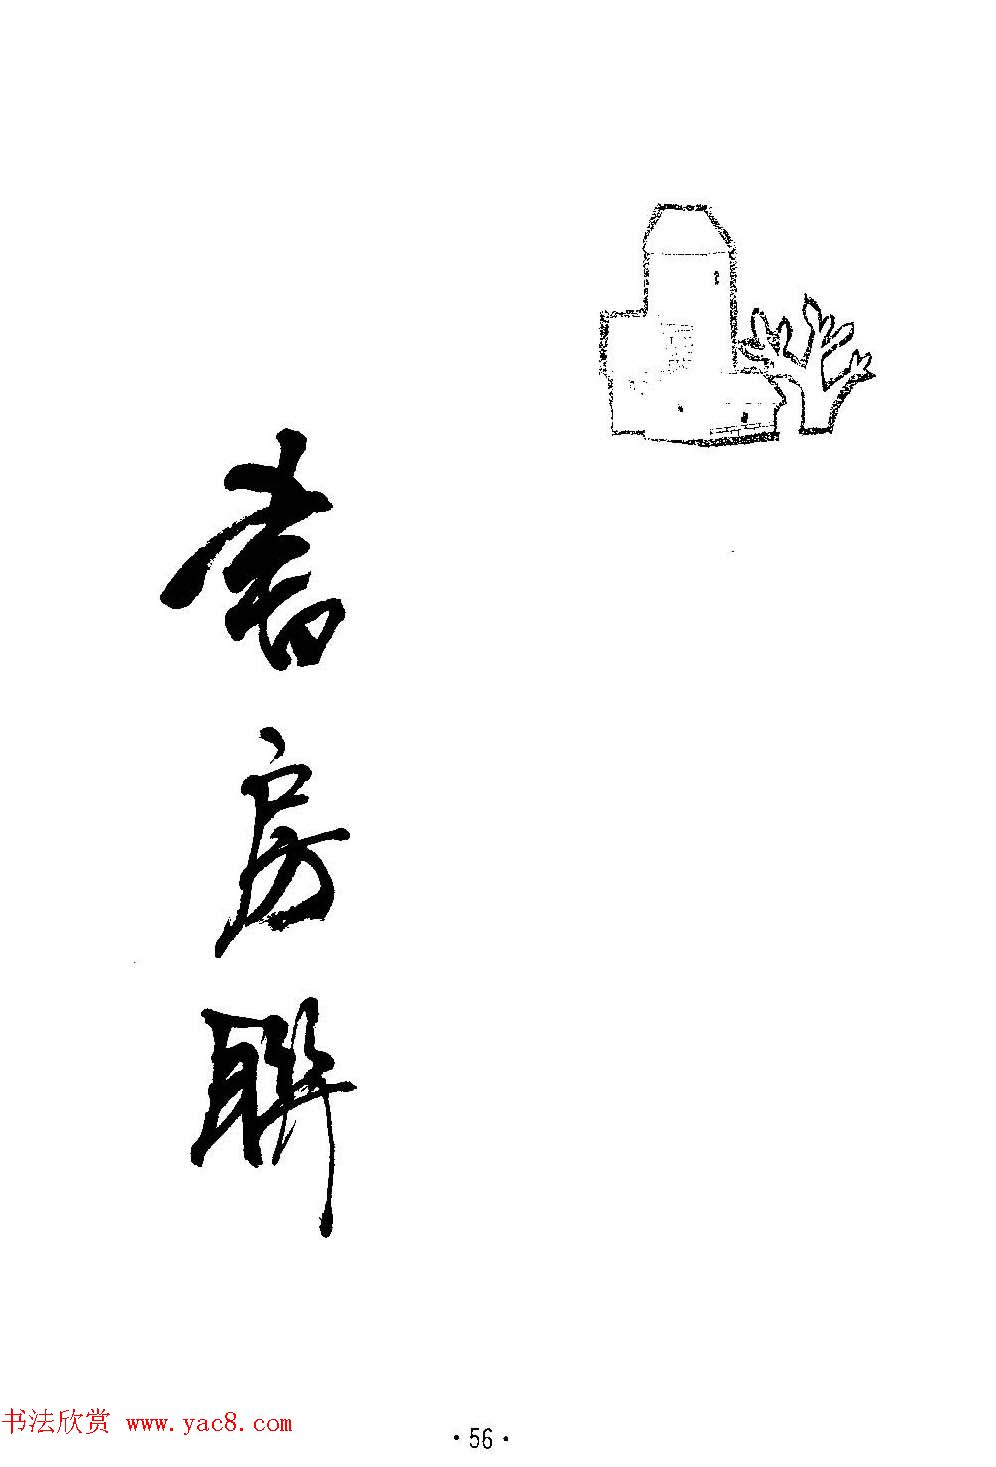 書房聯
书法欣赏 www.yac8.com
·56·